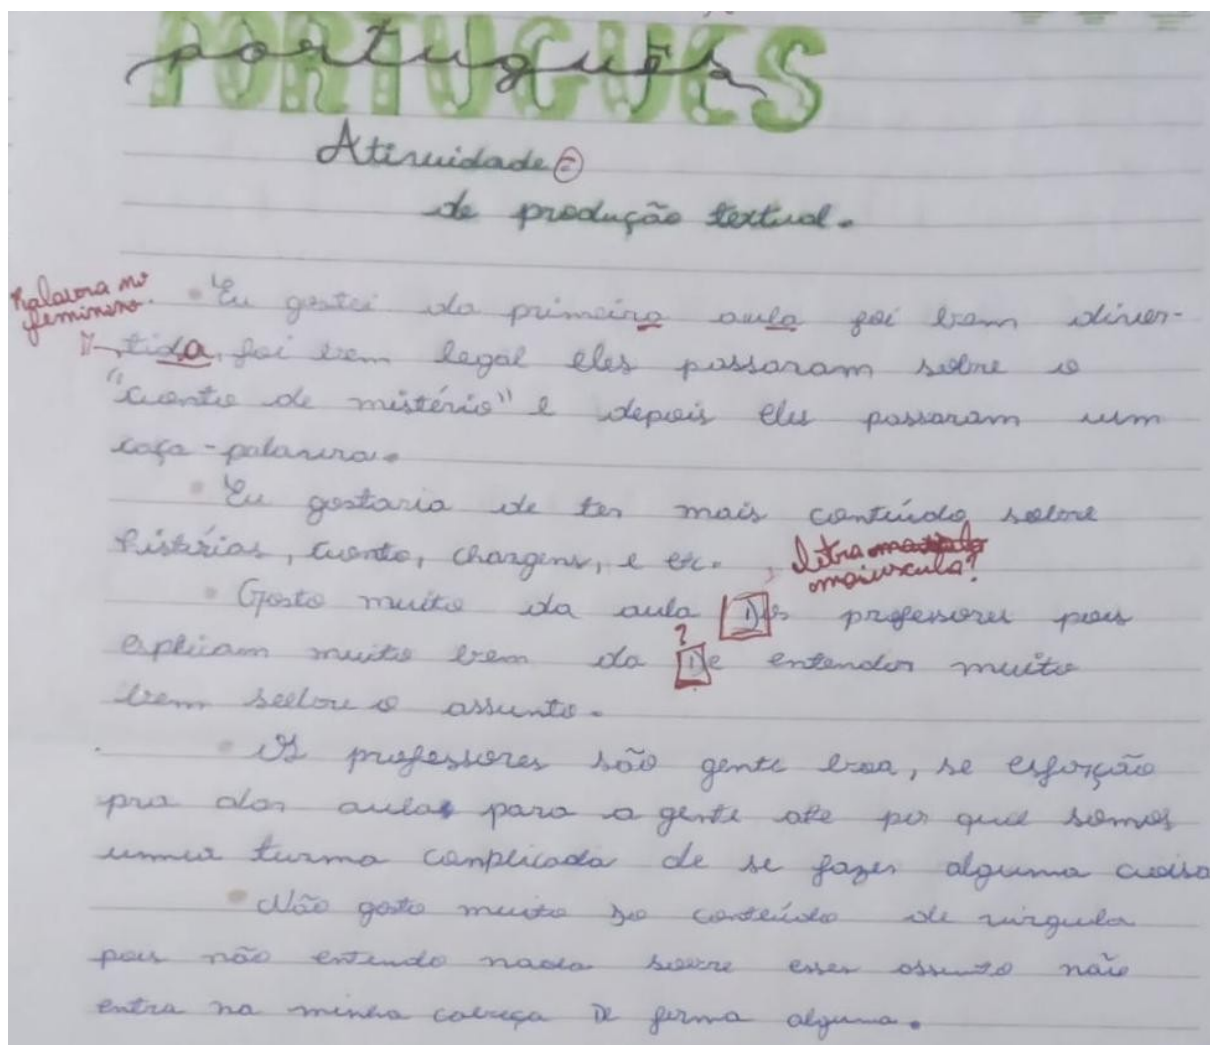 PORTUGUÊS
português
Atividade
de produção textual.
Palavra no
feminino.
Eu gostei da primeira aula foi bem diver-
tida, foi bem legal eles passaram sobre o
"cuento de mistério" e depois eles passaram um
caça-palavra.
Eu gostaria de ter mais conteúdo sobre
histórias, cuento, chargens, e etc.
letra
maiuscula?
Gosto muito da aula Dos professores pois
?
explicam muito bem da De entender muito
bem sobre o assunto.
Os professores são gente boa, se esforção
pra dar aulas para a gente ate por que somos
uma turma conplicada de se fazer alguma coisa
Não gosto muito do conteúdo de virgula
pois não entendo nada sobre esses assunto não
entra na minha cabeça De forma alguma.